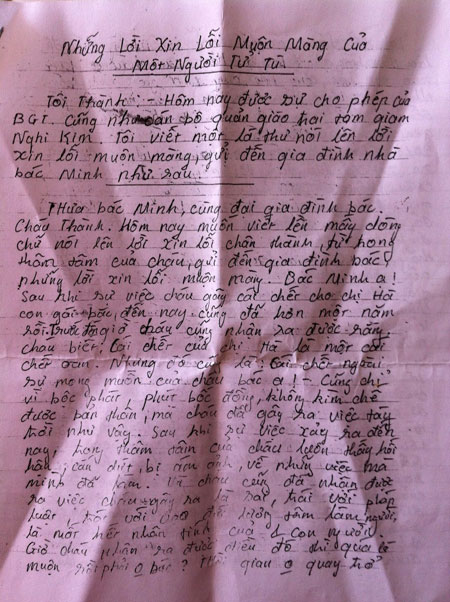 Những Lời Xin Lỗi Muộn Màng Của
Một Người Tử Tù
Tôi Thành: - Hôm nay được sự cho phép của
BGT. Cũng như cán bộ quản giáo hai tạm giam
Nghi Kim. Tôi viết một lá thư nói lên lời
xin lỗi muộn màng, gửi đến gia đình nhà
bác Minh như sau.
Thưa bác Minh, cùng đại gia đình bác.
Cháu Thành. Hôm nay muốn viết lên mấy dòng
chữ nói lên lời xin lỗi chân thành, từ trong
thâm tâm của cháu, gửi đến gia đình bác
những lời xin lỗi muộn màng. Bác Minh ạ!
Sau khi sự việc cháu gây cái chết cho chị Hà
con gái bác, đến nay cũng đã hơn một năm
rồi. Trước giờ cháu cũng nhận ra được rằng,
cháu biết, Cái chết của chị Hà là một cái
chết oan. Nhưng đó cũng là cái chết ngoài
sự mong muốn của cháu bác ạ! - Cũng chỉ
vì bột phát, phút bốc đồng, không kìm chế
được bản thân, mà cháu đã gây ra việc tày
trời như vậy. Sau khi sự việc xảy ra đến
nay, trong thâm tâm của cháu luôn thấy hối
hận, cắn dứt, bị ám ảnh, về những việc mà
mình đã làm. Và cháu cũng đã nhận được
ra việc cháu gây ra là sai trái với pháp
luật, trái với đạo đức lương tâm làm người,
là mất hết nhân tính của 1 con người.
Giờ cháu nhận ra được điều đó thì quá
muộn rồi phải o bác? Thời gian o quay trở